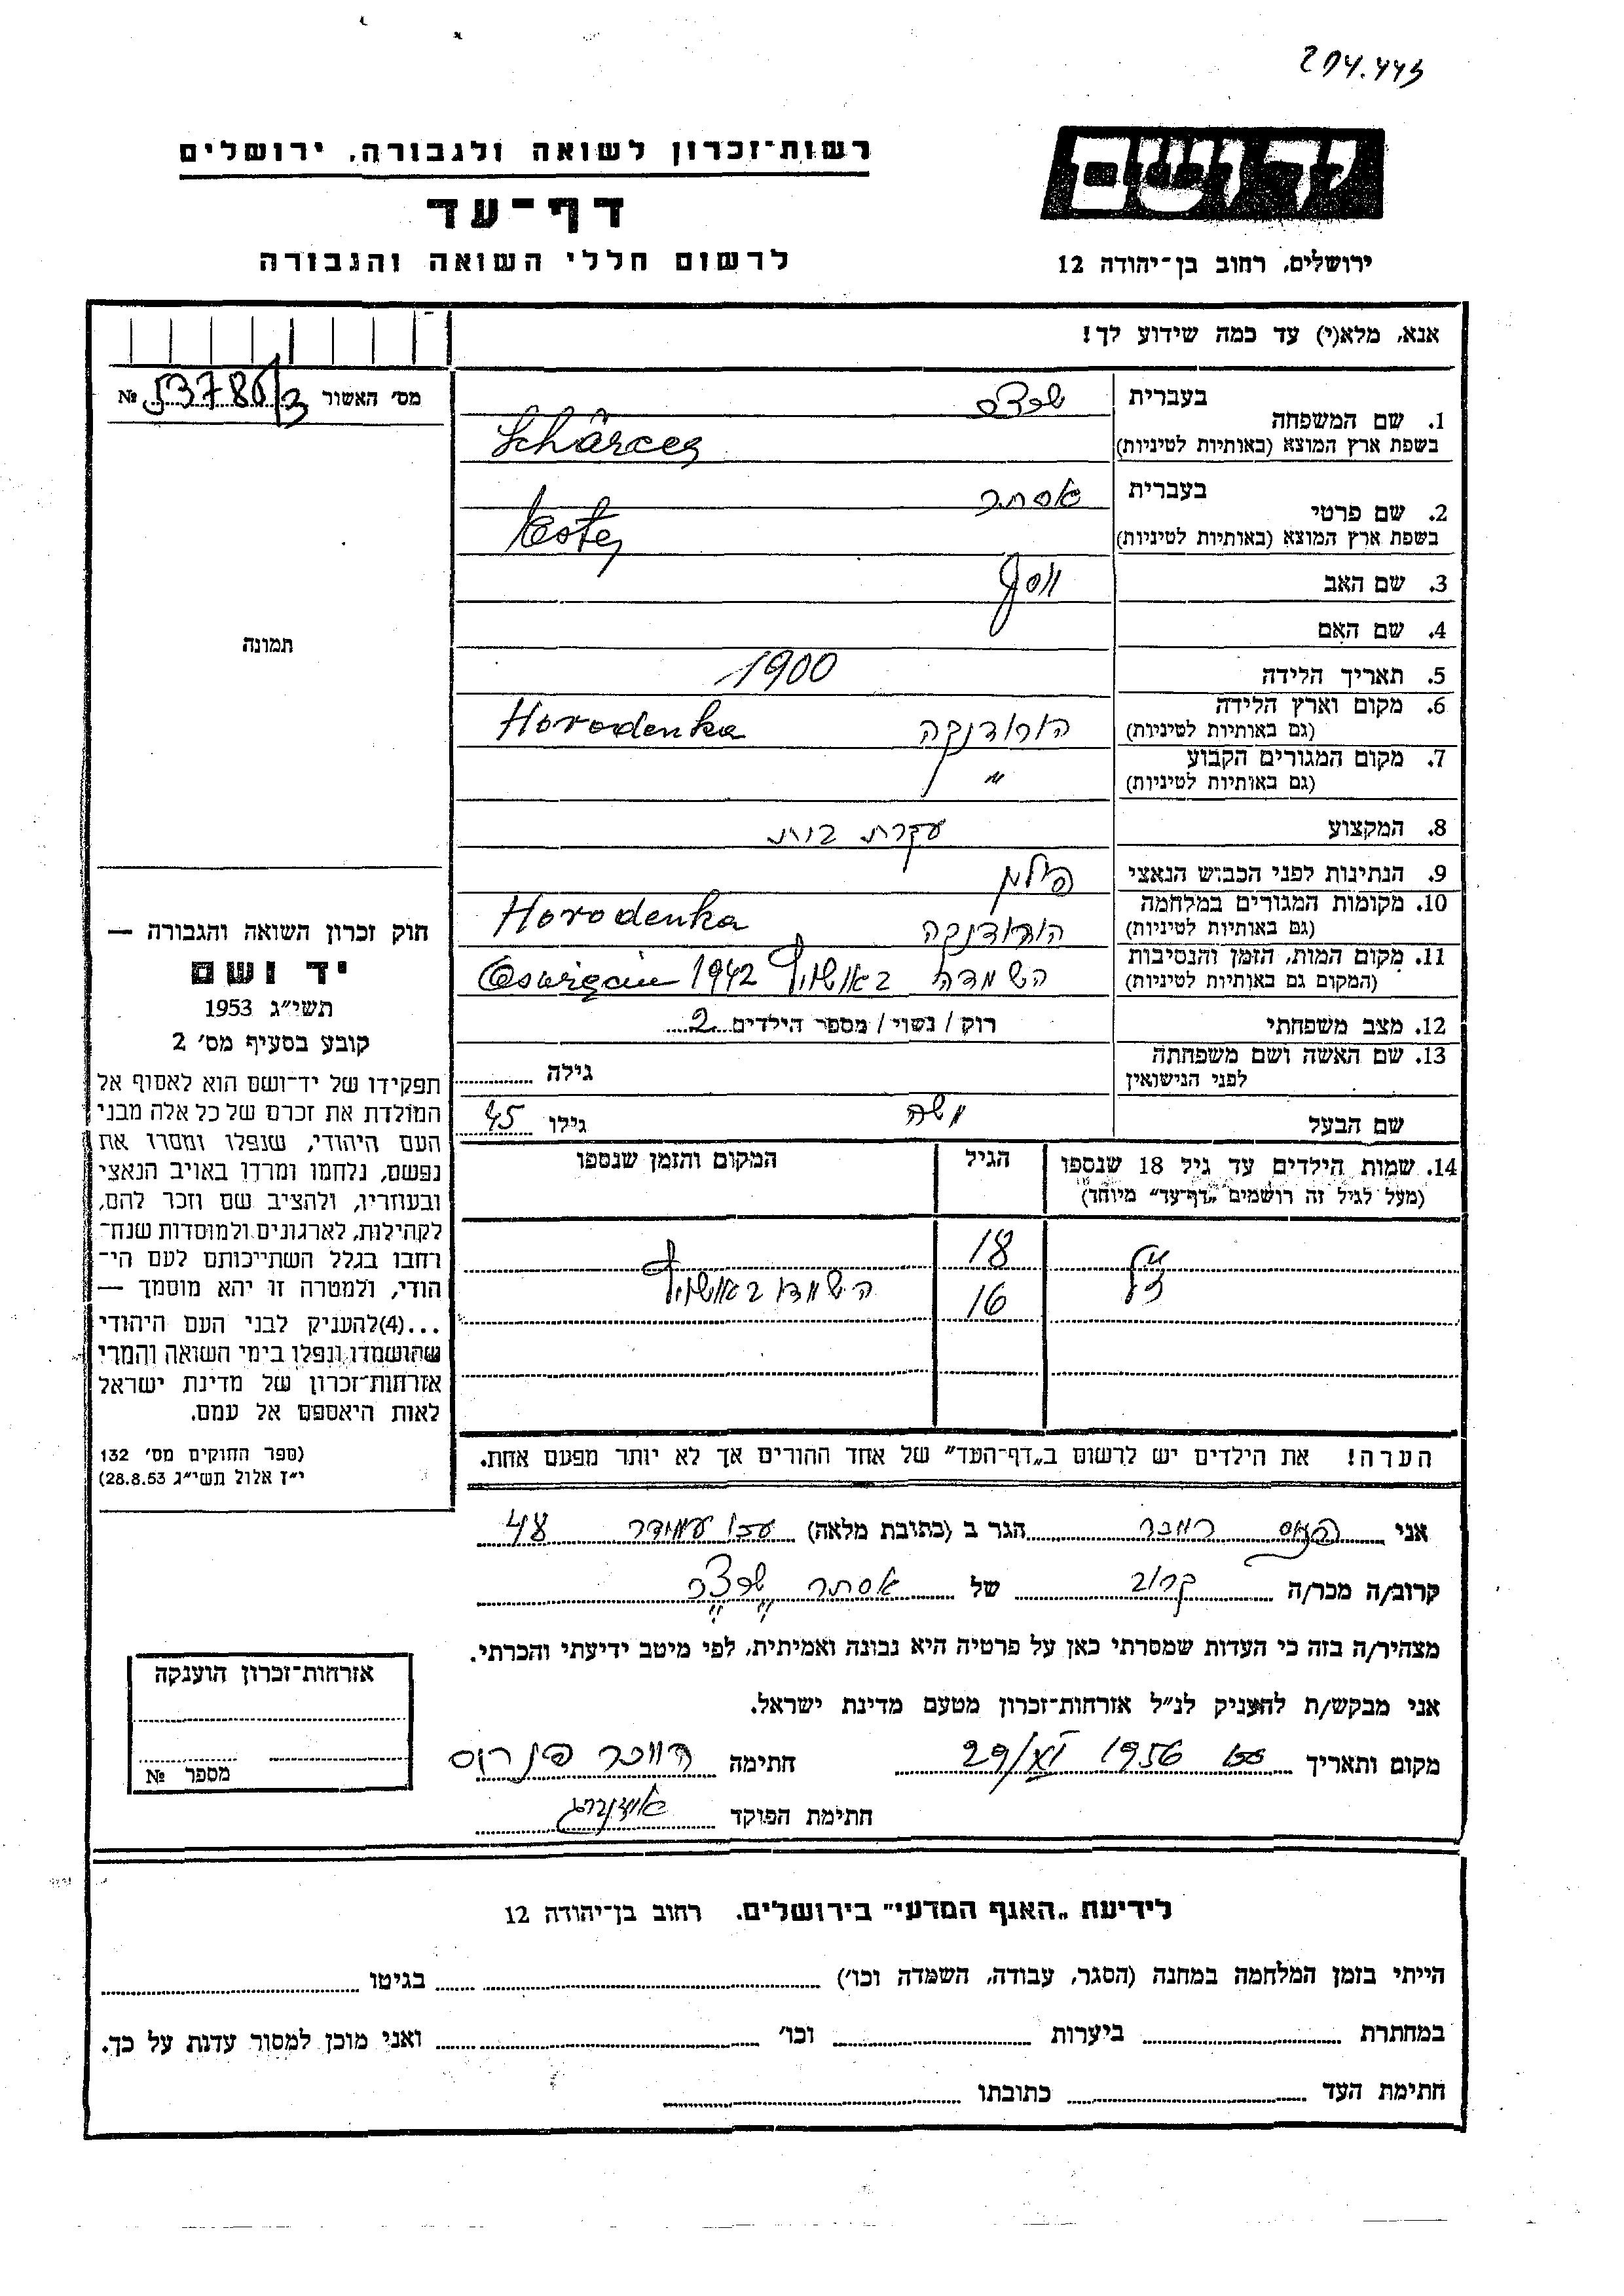 204.443
יד ושם
ירושלים, רחוב בן־יהודה 12
רשות־זכרון לשואה ולגבורה, ירושלים
דף־עד
לרשום חללי השואה והגבורה
אנא, מלא(י) עד כמה שידוע לך!
מס׳ האשור 53786/3 №
תמונה
חוק זכרון השואה והגבורה —
יד ושם
תשי״ג 1953
קובע בסעיף מס׳ 2
תפקידו של יד־ושם הוא לאסוף אל
המולדת את זכרם של כל אלה מבני
העם היהודי, שנפלו ומסרו את
נפשם, נלחמו ומרדו באויב הנאצי
ובעוזריו, ולהציב שם וזכר להם,
לקהילות, לארגונים ולמוסדות שנח־
רחבו בגלל השתייכותם לעם הי־
הודי, ולמטרה זו יהא מוסמך —
...(4)להעניק לבני העם היהודי
שהושמדו ונפלו בימי השואה והמרי
אזרחות־זכרון של מדינת ישראל
לאות היאספם אל עמם.
(ספר החוקים מס׳ 132
י״ז אלול תשי״ג 28.8.53)
1. שם המשפחה
בעברית
בשפת ארץ המוצא (באותיות לטיניות)
2. שם פרטי
בעברית אסתר
בשפת ארץ המוצא (באותיות לטיניות) Ester
3. שם האב יוסף
4. שם האם
5. תאריך הלידה 1900
6. מקום וארץ הלידה
(גם באותיות לטיניות) הורודנקה Horodenka
7. מקום המגורים הקבוע
(גם באותיות לטיניות) ״
8. המקצוע עקרת בית
9. הנתינות לפני הכבוש הנאצי פולין
10. מקומות המגורים במלחמה
(גם באותיות לטיניות) הורודנקה Horodenka
11. מקום המות, הזמן והנסיבות
(המקום גם באותיות לטיניות) השמדה באושויץ 1942
12. מצב משפחתי רוק / נשוי / מספר הילדים 2
13. שם האשה ושם משפחתה
לפני הנישואין גילה
שם הבעל משה גילו 45
14. שמות הילדים עד גיל 18 שנספו הגיל המקום והזמן שנספו
(מעל לגיל זה רושמים „דף־עד״ מיוחד)
18
16 השמדו באושויץ
הערה! את הילדים יש לרשום ב„דף־העד״ של אחד ההורים אך לא יותר מפעם אחת.
אני פנחס הגר ב (כתובת מלאה) 48
קרוב/ה מכר/ה קרוב של אסתר
מצהיר/ה בזה כי העדות שמסרתי כאן על פרטיה היא נכונה ואמיתית, לפי מיטב ידיעתי והכרתי.
אני מבקש/ת להעניק לנ״ל אזרחות־זכרון מטעם מדינת ישראל.
מקום ותאריך 29/XI 1956 חתימה
חתימת הפוקד
אזרחות־זכרון הוענקה
מספר №
לידיעת „האגף המדעי״ בירושלים. רחוב בן־יהודה 12
הייתי בזמן המלחמה במחנה (הסגר, עבודה, השמדה וכו׳) בגיטו
במחתרת ביערות וכו׳ ואני מוכן למסור עדות על כך.
חתימת העד כתובתו